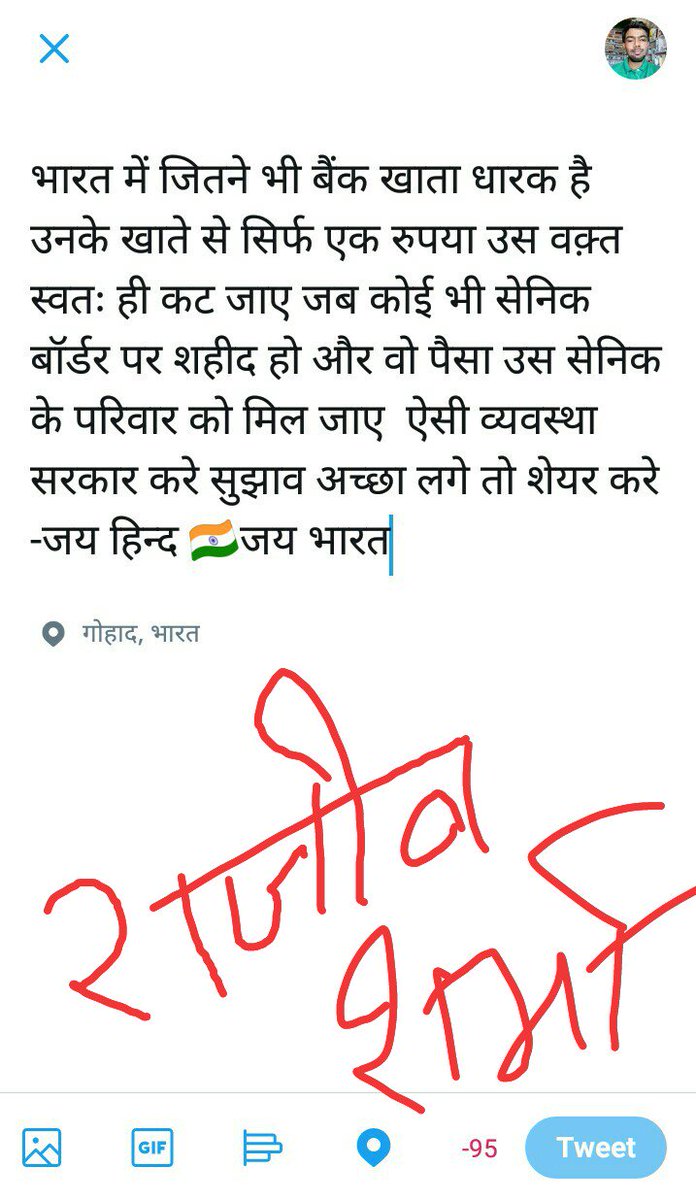 भारत में जितने भी बैंक खाता धारक है
उनके खाते से सिर्फ एक रुपया उस वक़्त
स्वतः ही कट जाए जब कोई भी सेनिक
बॉर्डर पर शहीद हो और वो पैसा उस सेनिक
के परिवार को मिल जाए ऐसी व्यवस्था
सरकार करे सुझाव अच्छा लगे तो शेयर करे
-जय हिन्द 🇮🇳जय भारत
गोहाद, भारत
राजीव
शर्मा
GIF
-95
Tweet